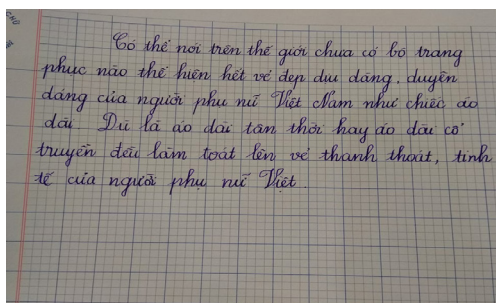 Có thể nói trên thế giới chưa có bộ trang
phục nào thể hiện hết vẻ đẹp dịu dàng, duyên
dáng của người phụ nữ Việt Nam như chiếc áo
dài. Dù là áo dài tân thời hay áo dài cổ
truyền đều làm toát lên vẻ thanh thoát, tinh
tế của người phụ nữ Việt.